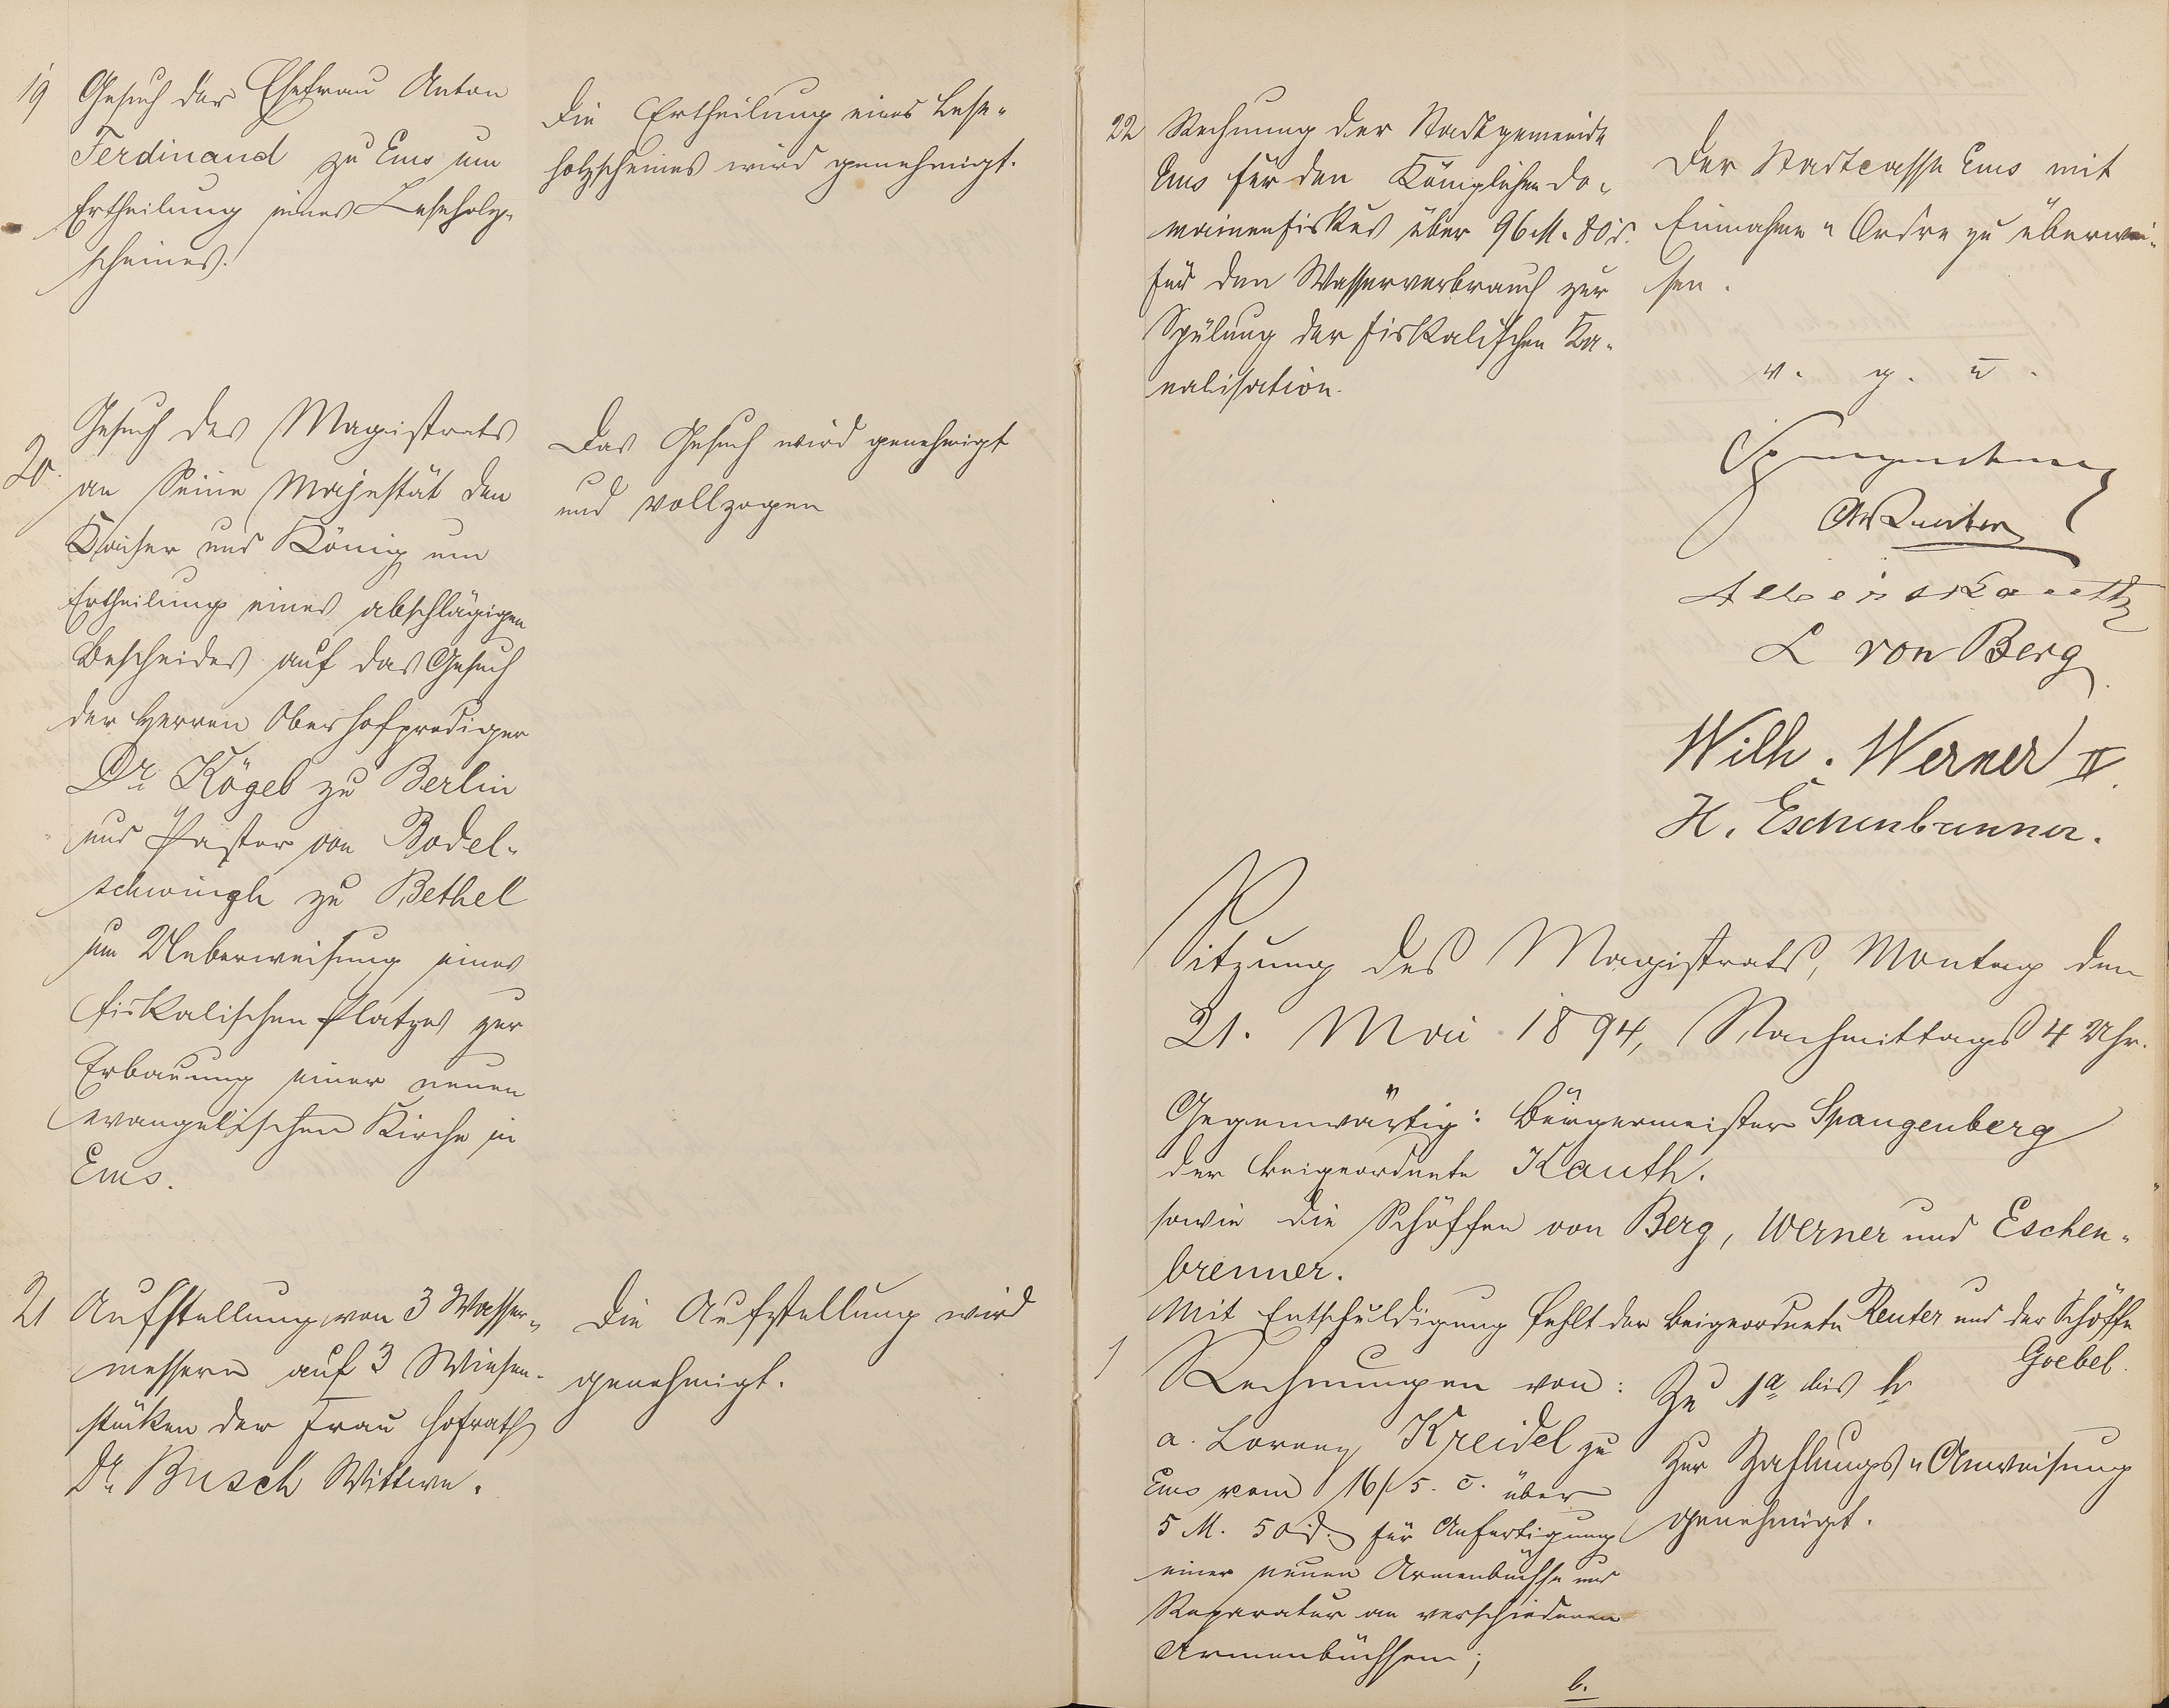 19 Gesuch der Ehefrau Anton
Ferdinand zu Ems um
Ertheilung eines Leseholz-
scheines.
Die Ertheilung eines Lese-
holzscheines wird genehmigt.
20. Gesuch des Magistrats
an Seine Majestät den
Kaiser und König um
Ertheilung eines abschlägigen
Bescheides auf das Gesuch
der Herren Oberhofprediger
Dr. Kögel zu Berlin
und Pastor von Bodel-
schwingh zu Bethel
um Ueberweisung eines
fiskalischen Platzes zur
Erbauung einer neuen
evangelischen Kirche in
Ems.
Das Gesuch wird genehmigt
und vollzogen
21 Aufstellung von 3 Wasser-
messern auf 3 Wiesen-
stücken der Frau Hofrath
Dr. Busch Wittwe.
Die Aufstellung wird
genehmigt.
22 Rechnung der Stadtgemeinde
Ems für den Königlichen Do-
mainenfiskus über 96 M. 80 d.
für den Wasserverbrauch zur
Spülung der fiskalischen Ka-
nalisation.
Der Stadtcasse Ems mit
Einnahme-Ordre zu überwei-
sen.
v. g. u.
Spangenberg
Reuter
Albert Kauth
L von Berg
Wilh. Werner II.
H. Eschenbrenner.
Sitzung des Magistrats, Montag den
21. Mai 1894, Nachmittags 4 Uhr.
Gegenwärtig: Bürgermeister Spangenberg
der Beigeordnete Kauth.
sowie die Schöffen von Berg, Werner und Eschen-
brenner.
Mit Entschuldigung fehlt der Beigeordnete Reuter und der Schöffe
Goebel.
1 Rechnungen von:
a. Lorenz Kreidel zu
Ems vom 16/5. c. über
5 M. 50 d. für Anfertigung
einer neuen Armenbüchse und
Reparatur an verschiedenen
Armenbüchsen;
Zu 1a bis
Zur Zahlungs-Anweisung
genehmigt.
b.